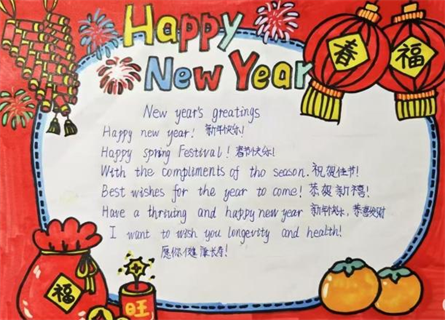 Happy
New Year
春
福
New year's greatings
Happy new year! 新年快乐!
Happy spring Festival! 春节快乐!
With the compliments of the season. 祝贺佳节!
Best wishes for the year to come! 恭贺新禧!
Have a thriving and happy new year 新年快乐, 恭喜发财
I want to wish you longevity and health!
愿你健康长寿!
福
旺